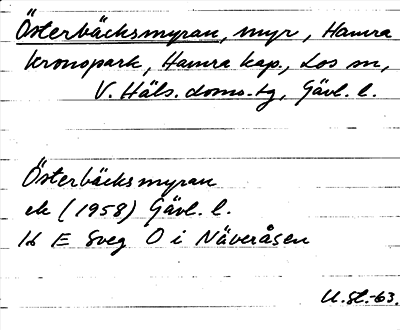 Österbäcksmyran, myr, Hamra
kronopark, Hamra kap., Los sn,
V. Häls. doms.-tg, Gävl. l.
Österbäcksmyran
ek (1958) Gävl. l.
16 E Sveg O i Näveråsen
U.Sl.-63.